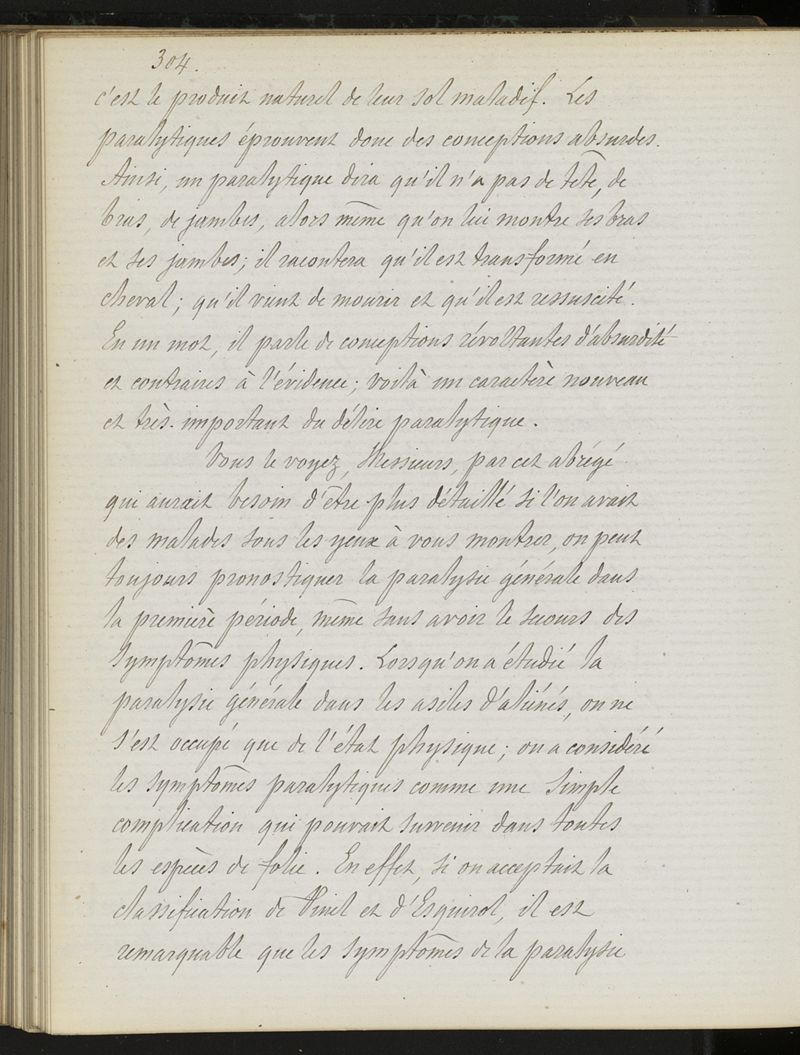 304.
c'est le produit naturel de leur sol maladif. Les
paralytiques éprouvent donc des conceptions absurdes.
Ainsi, un paralytique dira qu'il n'a pas de tête, de
bras, de jambes, alors même qu'on lui montre ses bras
et ses jambes; il racontera qu'il est transformé en
cheval; qu'il vient de mourir et qu'il est ressuscité.
En un mot, il parle de conceptions révoltantes d'absurdité
et contraires à l'évidence; voilà un caractère nouveau
et très-important du délire paralytique.
Vous le voyez, Messieurs, par cet abrégé
qui aurait besoin d'être plus détaillé si l'on avait
des malades sous les yeux à vous montrer, on peut
toujours pronostiquer la paralysie générale dans
la première période, même sans avoir le secours des
symptômes physiques. Lorsqu'on a étudié la
paralysie générale dans les asiles d'aliénés, on ne
s'est occupé que de l'état physique; on a considéré
les symptômes paralytiques comme une simple
complication qui pouvait survenir dans toutes
les espèces de folie. En effet, si on acceptait la
classification de Pinel et d'Esquirol, il est
remarquable que les symptômes de la paralysie